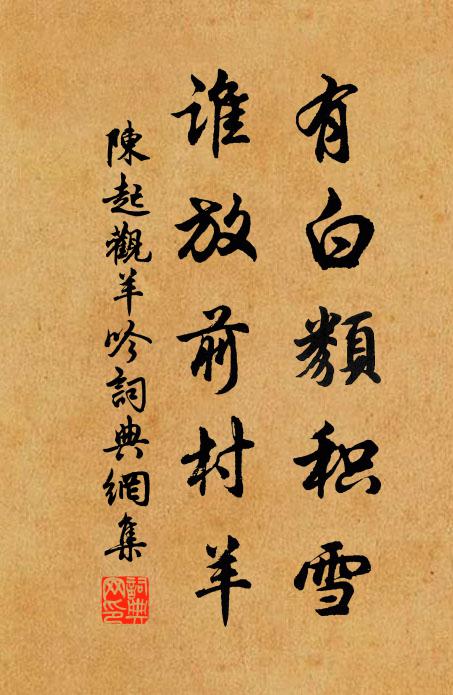 有白類积雪
谁放前村羊
陳起觀羊吟詞典網集
詞典网印